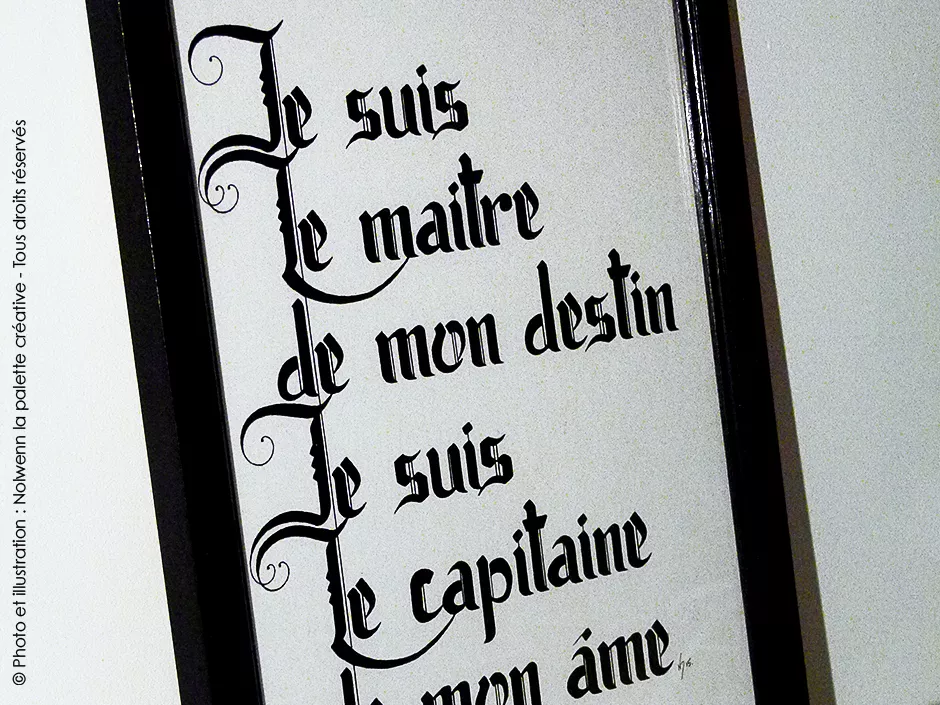 Je suis
Le maitre
de mon destin
Je suis
Le capitaine
de mon âme
© Photo et illustration : Nolwenn la palette créative - Tous droits réservés